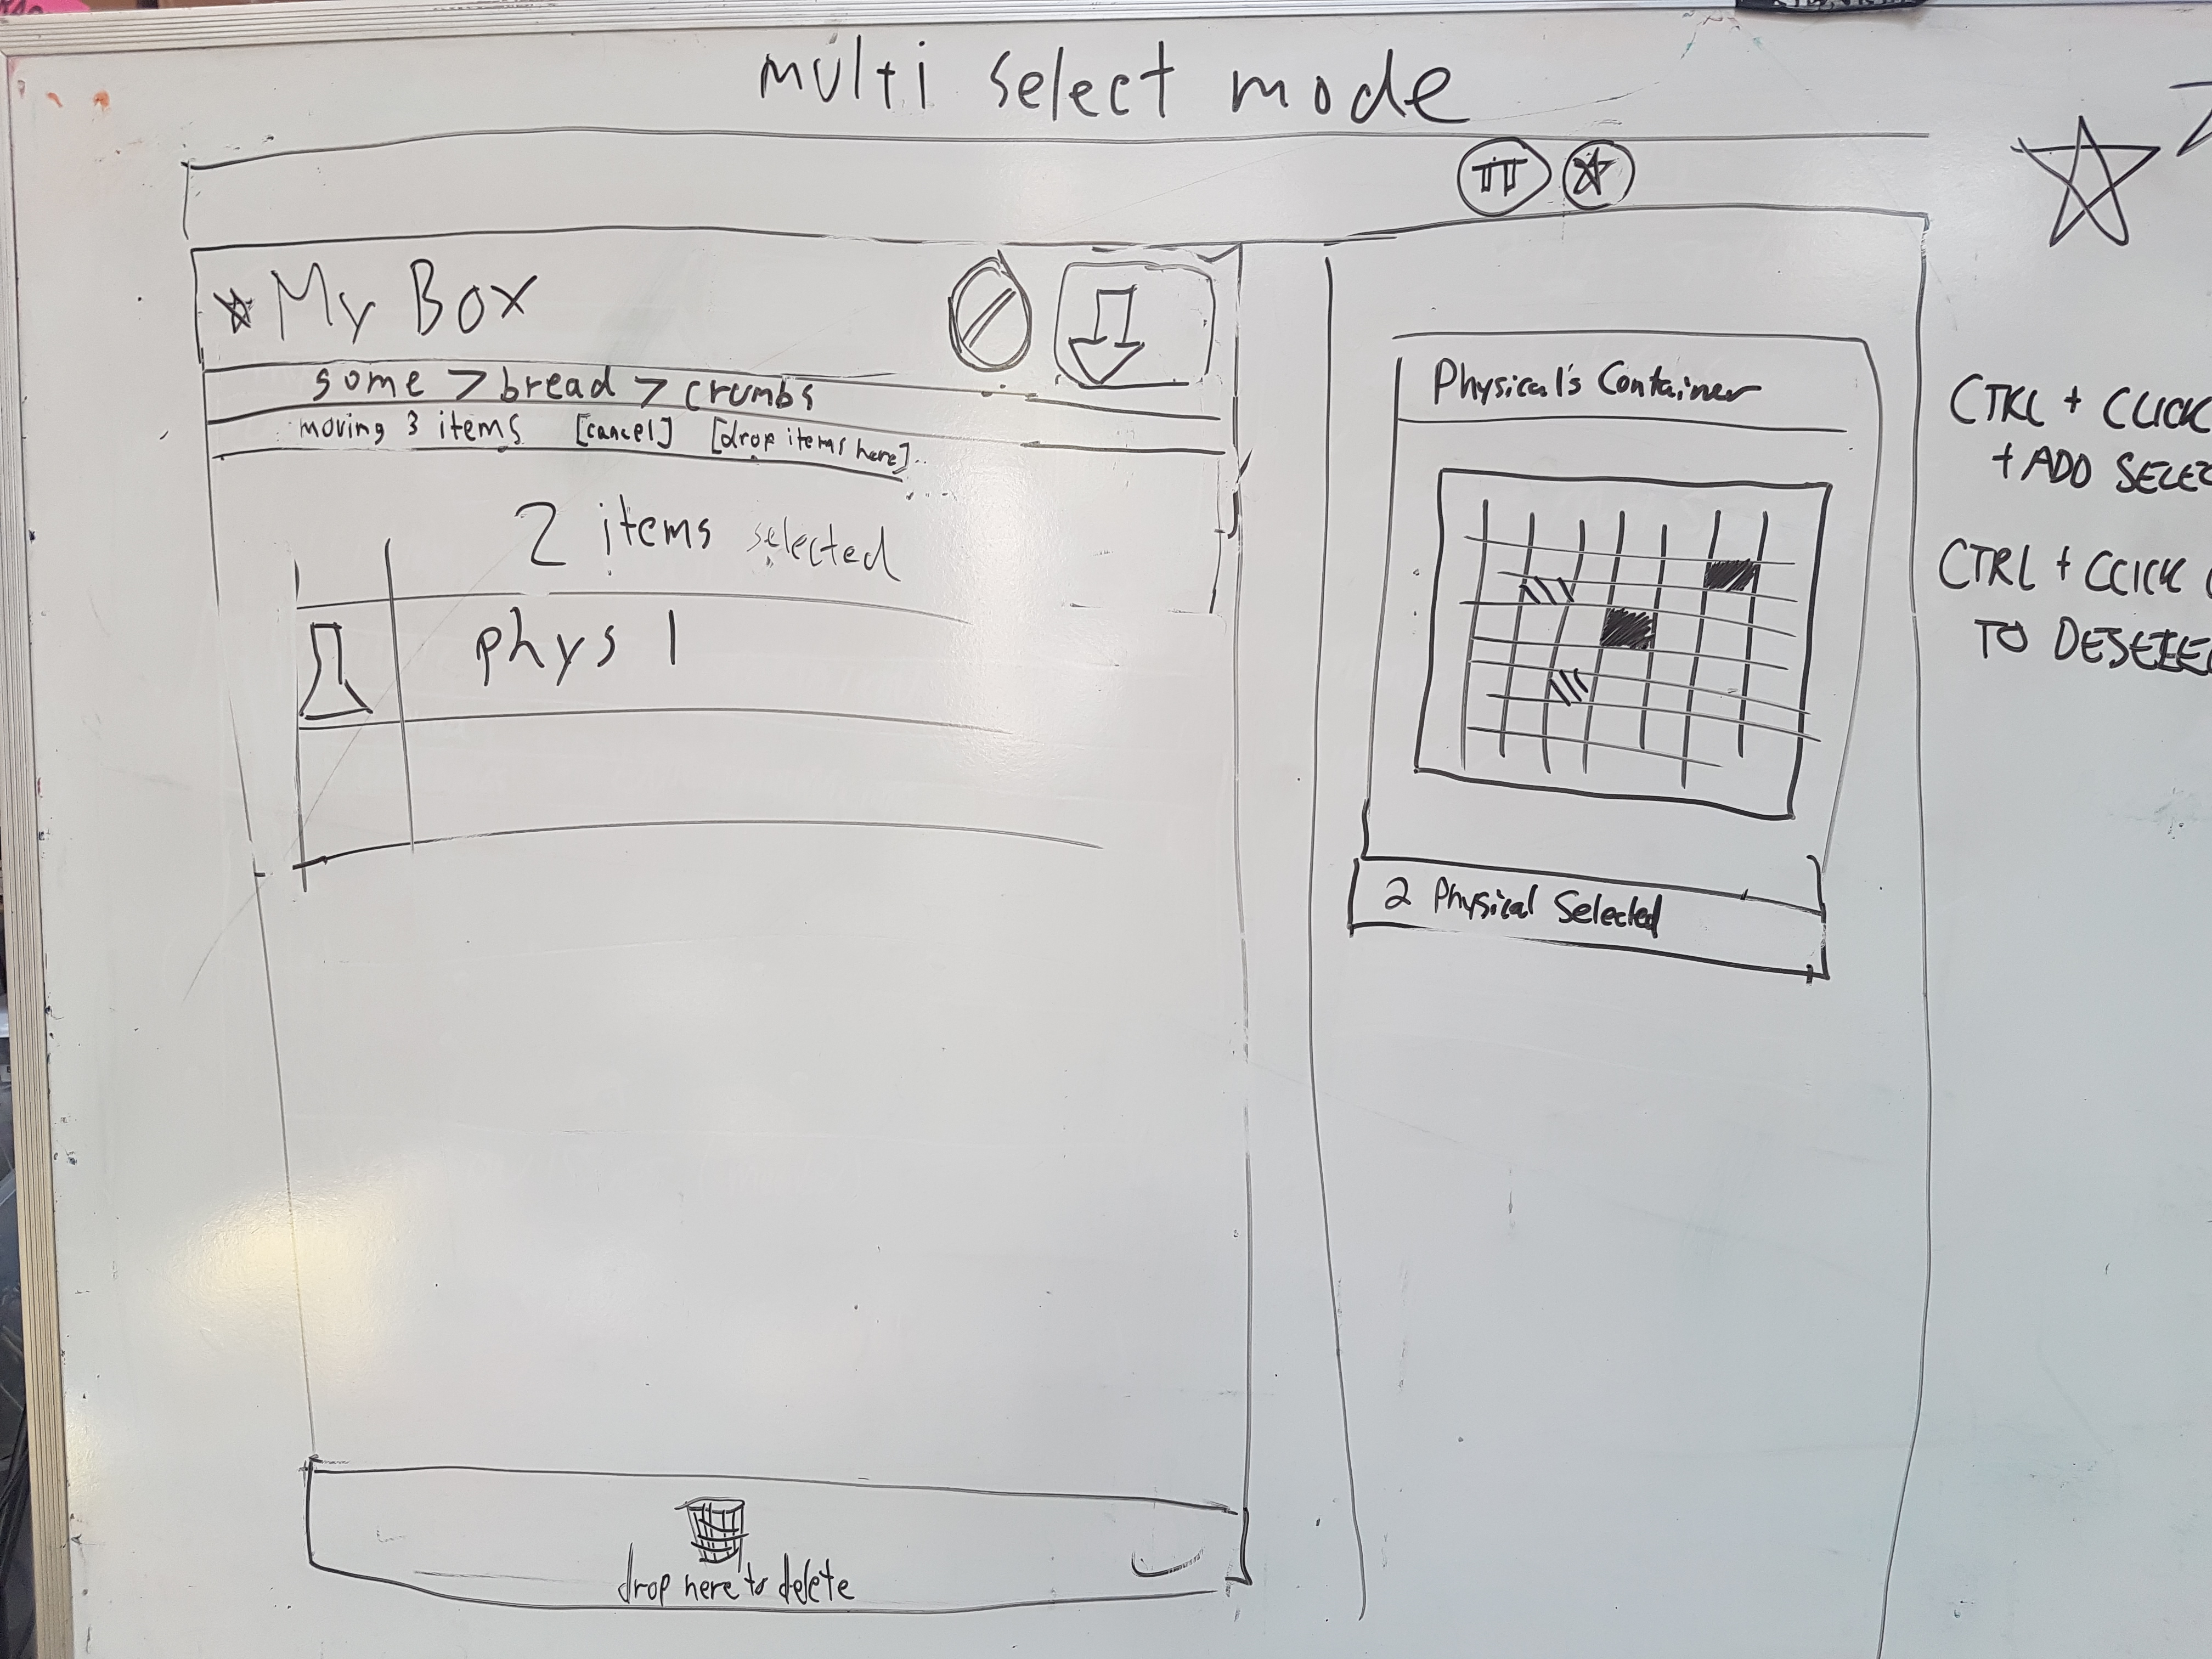 multi select mode
My Box
some > bread > crumbs
moving 3 items [cancel] [drop items here]..
2 items selected
phys 1
drop here to delete
Physical's Container
2 Physical Selected
CTRL + CLICK
+ ADD SELEC
CTRL + CLICK
TO DESELEC